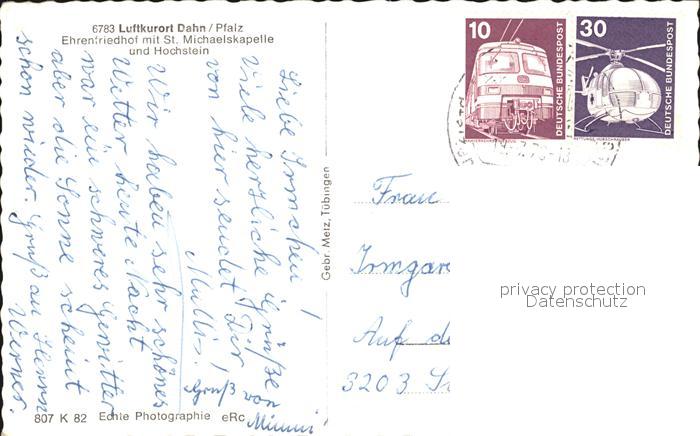 6783 Luftkurort Dahn / Pfalz
Ehrenfriedhof mit St. Michaelskapelle
und Hochstein
Liebe Irmchen!
Viele herzliche Grüße
von hier sendet Dir
Mutti!
Wir haben sehr schönes
Wetter heute Nacht
war ein schweres Gewitter
aber die Sonne scheint
schon wieder. Gruß an Herrn
Werner.
Gruß von
Mimmi!
807 K 82 Echte Photographie eRc
Gebr. Metz, Tübingen
10
DEUTSCHE BUNDESPOST
30
DEUTSCHE BUNDESPOST
RETTUNGS-HUBSCHRAUBER
Frau
Irmgar
Auf de
3203 S
privacy protection
Datenschutz